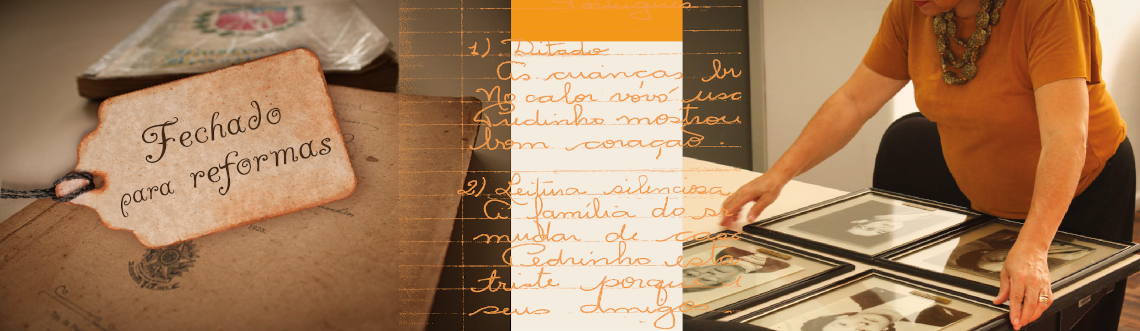 Fechado
para reformas
Português
1) Ditado
As crianças br
No calor vovó usa
Pedrinho mostrou
bom coração.
2) Leitura silenciosa
A família do s
mudar de casa
Pedrinho esta
triste porque
seus amigos